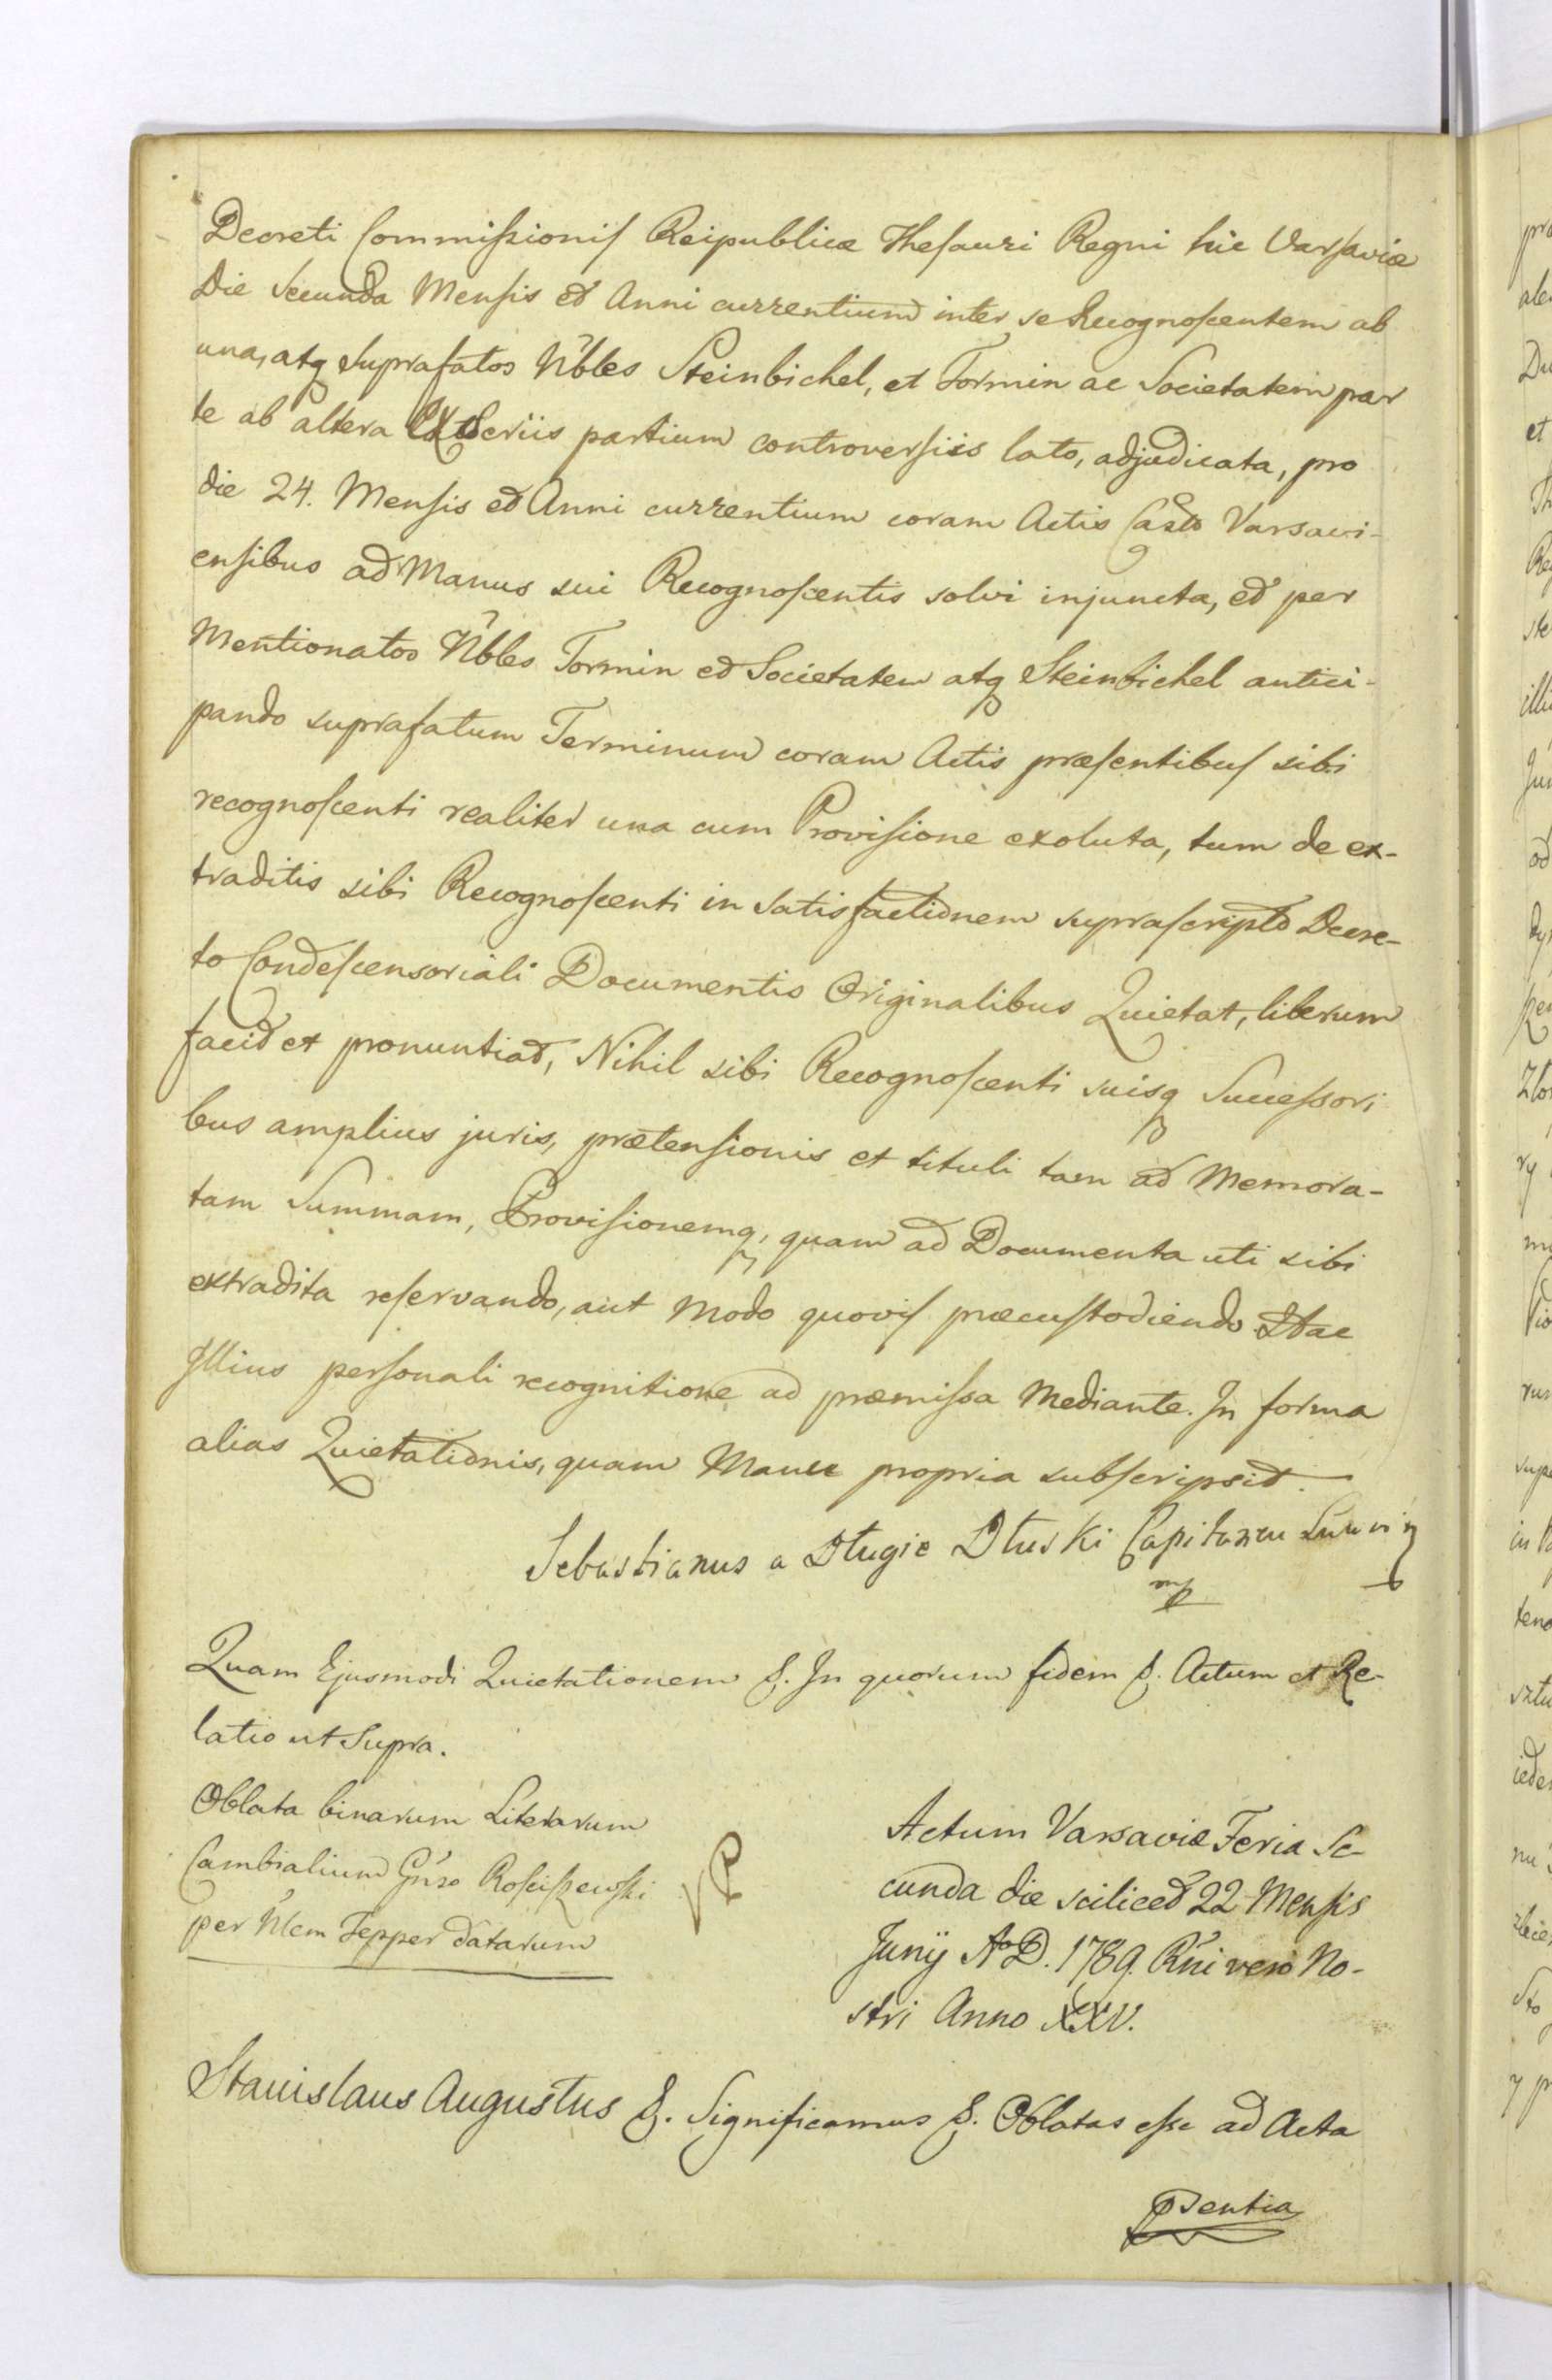 Decreti Commiſsioniſ Reipublicæ Theſauri Regni hic Varſaviæ
Die Secunda Menſis et Anni currentium inter se Recognoſcentem ab
una, atq suprafatos Nbles Steinbichel, et Formin ac Societatem par
te ab altera Ex Seriis partium controverſiis lato, adjudicata, pro
die 24. Menſis et Anni currentium coram Actis Varsavi-
enſibus ad Manus sui Recognoſcentis solvi injuncta, et per
Mentionatos Nbles Formin et Societatem atq Steinbichel antici-
pando suprafatum Terminum coram Actis præſentibuſ sibi
recognoſcenti realiter una cum Proviſione exoluta, tum de ex-
traditis sibi Recognoſcenti in satisfactionem supraſcripto Decre-
to Condeſcensoriali Documentis Originalibus Quietat, liberum
facit et pronuntiat, Nihil sibi Recognoſcenti suisq Succeſsori
bus amplius juris, prætenſionis et tituli tam ad Memora-
tam Summam, Proviſionemq, quam ad Documenta uti sibi
extradita reſervando, aut Modo quoviſ præcuſtodiendo Hac
Illius perſonali recognitione ad præmiſsa Mediante. In forma
alias Quietationis, quam Manu propria subſcripsit.
Sebastianus a Długie Dłuski Capitaneu
mp
Quam Ejusmodi Quietationem &. In quorum fidem &. Actum et Re-
latio ut Supra.
Oblata binarum Literarum
Cambialium Gnso Roſciſzewſki
per Nlem Tepper datarum
Actum Varsaviæ Feria Se-
cunda die scilicet 22 Menſis
Junij Ao D. 1789. Rni vero No-
stri Anno XXV.
Stanislaus Augustus &. Significamus &. Oblatas eſse ad Acta
psentia